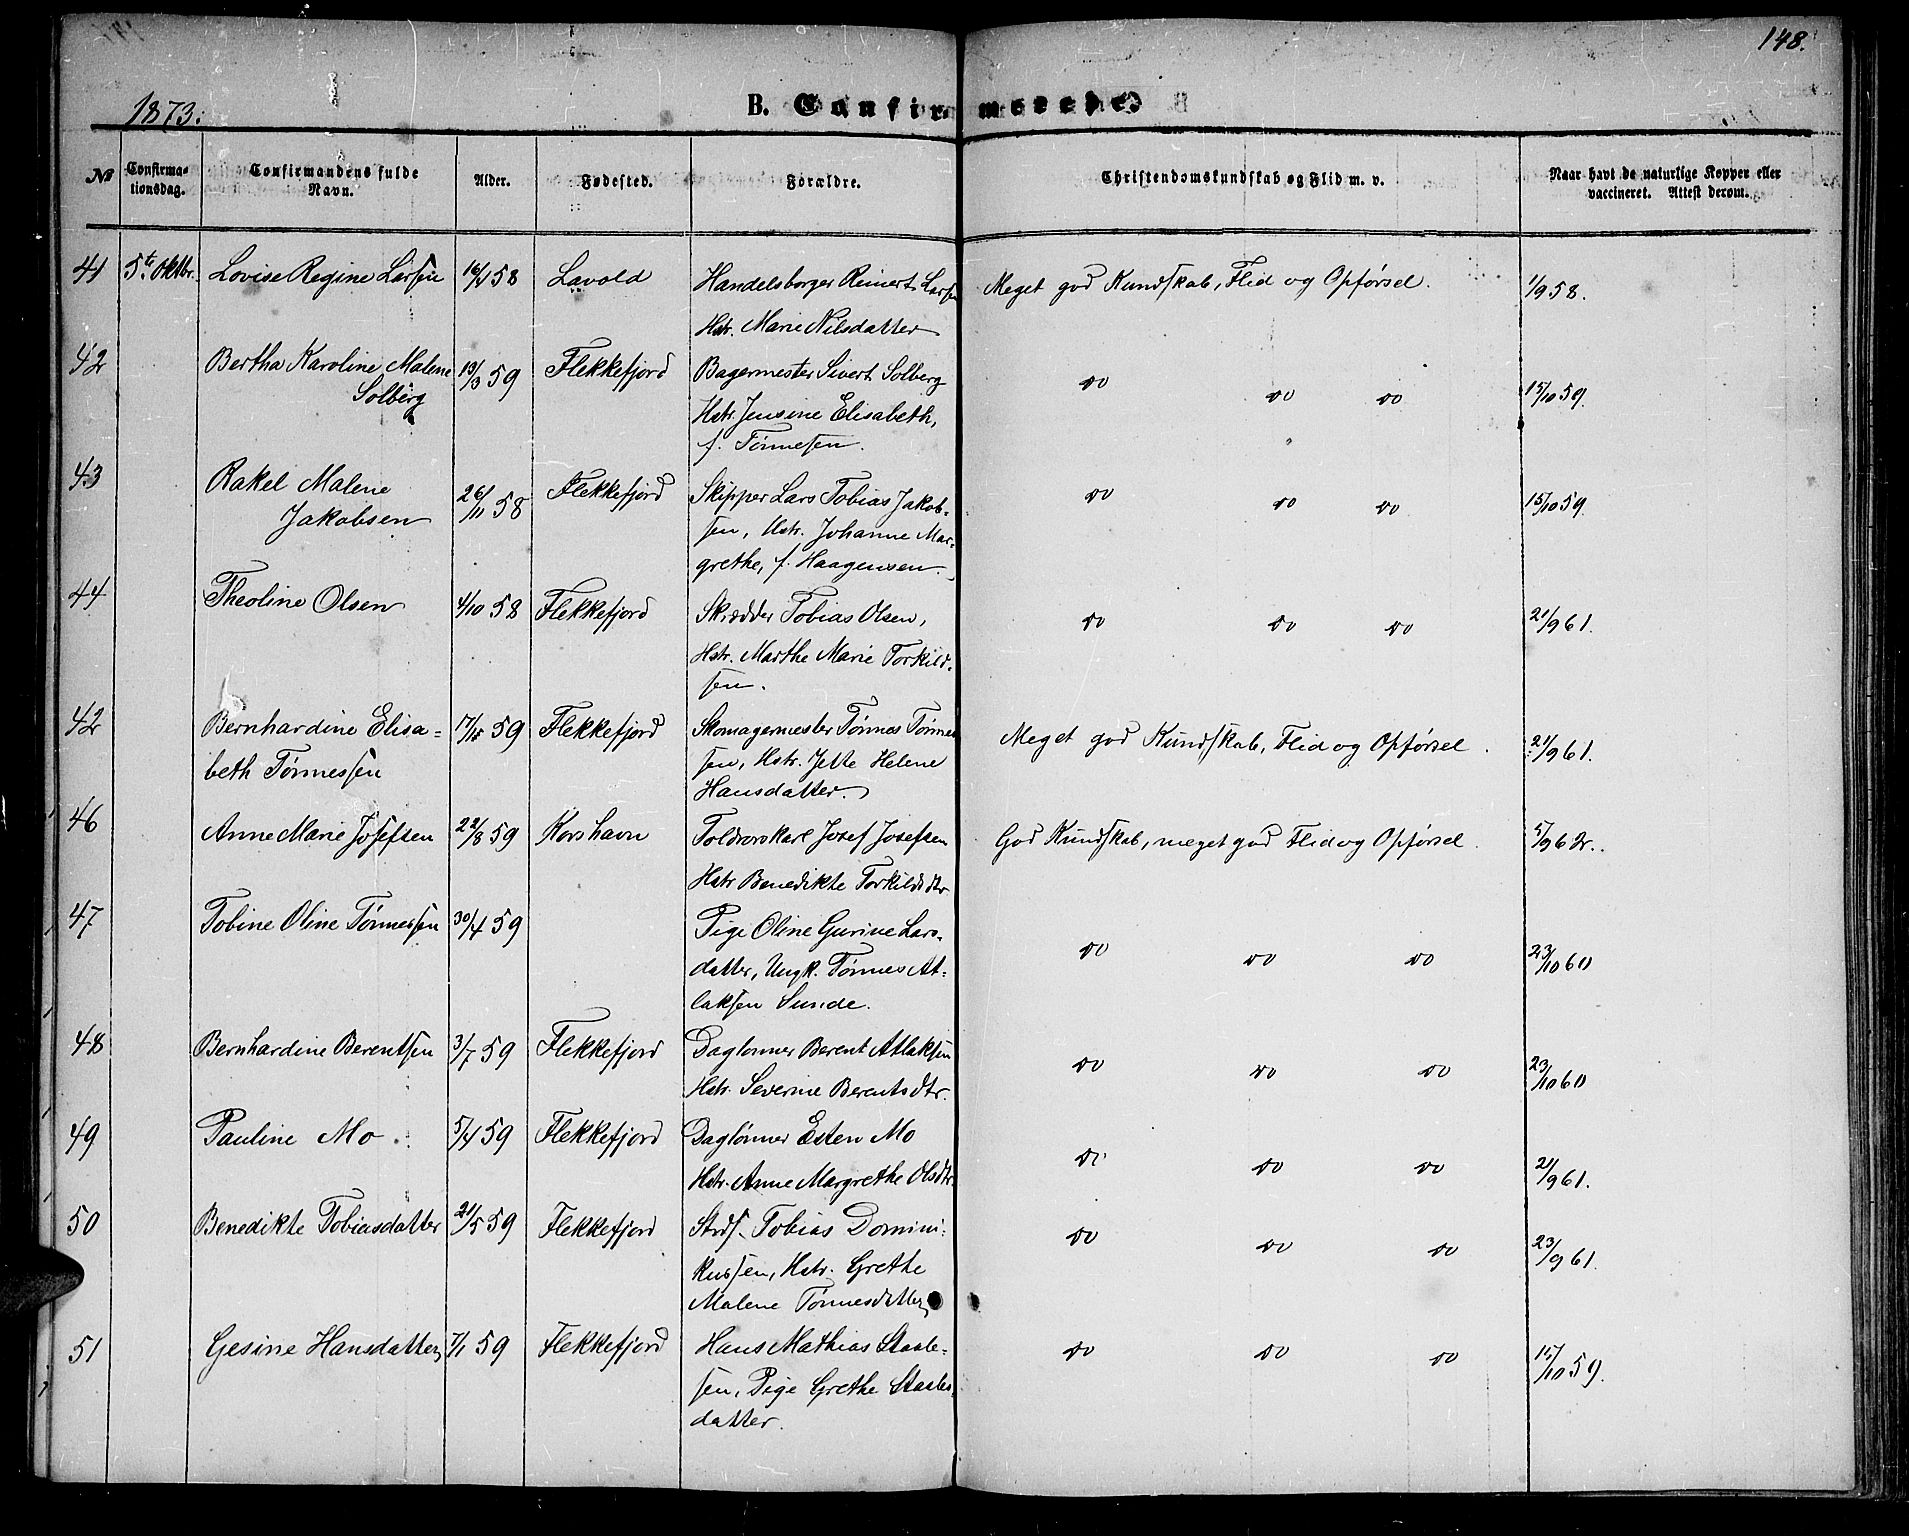 148.
1873.
B. Confirmerede.
№ Confirmationsdag. Confirmandens fulde Navn. Alder. Fødested. Forældre. Christendomskundskab og Flid m. v. Naar havt de naturlige Kopper eller vaccineret. Attest derom.
41 5te Oktbr. Lovise Regine Larsen 16/4 58 Lavold Handelsborger Reinert Larsen Meget god Kundskab, Flid og Opførsel. 1/9 58.
Hstr. Marie Nilsdatter
42 Bertha Karoline Malene 13/3 59 Flekkefjord Bagermester Sivert Solberg do do do 15/10 59.
Solberg Hstr. Jensine Elisabeth,
f. Tønnesen.
43 Rakel Malene 26/11 58 Flekkefjord Skipper Lars Tobias Jakob- do do do 15/10 59.
Jakobsen sen, Hstr. Johanne Mar-
grethe, f. Haagensen.
44 Theoline Olsen 4/10 58 Flekkefjord Skrædder Tobias Olsen, do do do 21/9 61.
Hstr. Marthe Marie Torkild-
sen.
42 Bernhardine Elisa- 59 Flekkefjord Skomagermester Tønnes Tønnes Meget god Kundskab, Flid og Opførsel. 21/9 61.
beth Tønnessen sen, Hstr. Jette Helene
Hansdatter.
46 Anne Marie Josefsen 22/8 59 Korshavn Toldrorskarl Josef Josefsen God Kundskab, meget god Flid og Opførsel. 5/9 62.
Hstr Benedikte Torkildsdtr
47 Tobine Oline Tønnessen 30/4 59 Pige Oline Gurine Lars- do do do 23/10 60
datter, Ungk. Tønnes At-
laksen Sunde.
48 Bernhardine Berentsen 3/7 59 Flekkefjord Daglønner Berent Atlaksen do do do 23/10 60
Hstr. Severine Berentsdtr.
49 Pauline Mo. 5/4 59 Flekkefjord Daglønner Esten Mo do do do 21/9 61.
Hstr. Anne Margrethe Olsdtr.
50 Benedikte Tobiasdatter 21/5 59 Flekkefjord Strds. Tobias Domini- do do do 23/9 61.
kussen, Hstr. Grethe
Malene Tønnesdatter
51 Gesine Hansdatter 7/1 59 Flekkefjord Hans Mathias Staale- do do do 15/10 59.
sen, Pige Grethe Staales
datter.